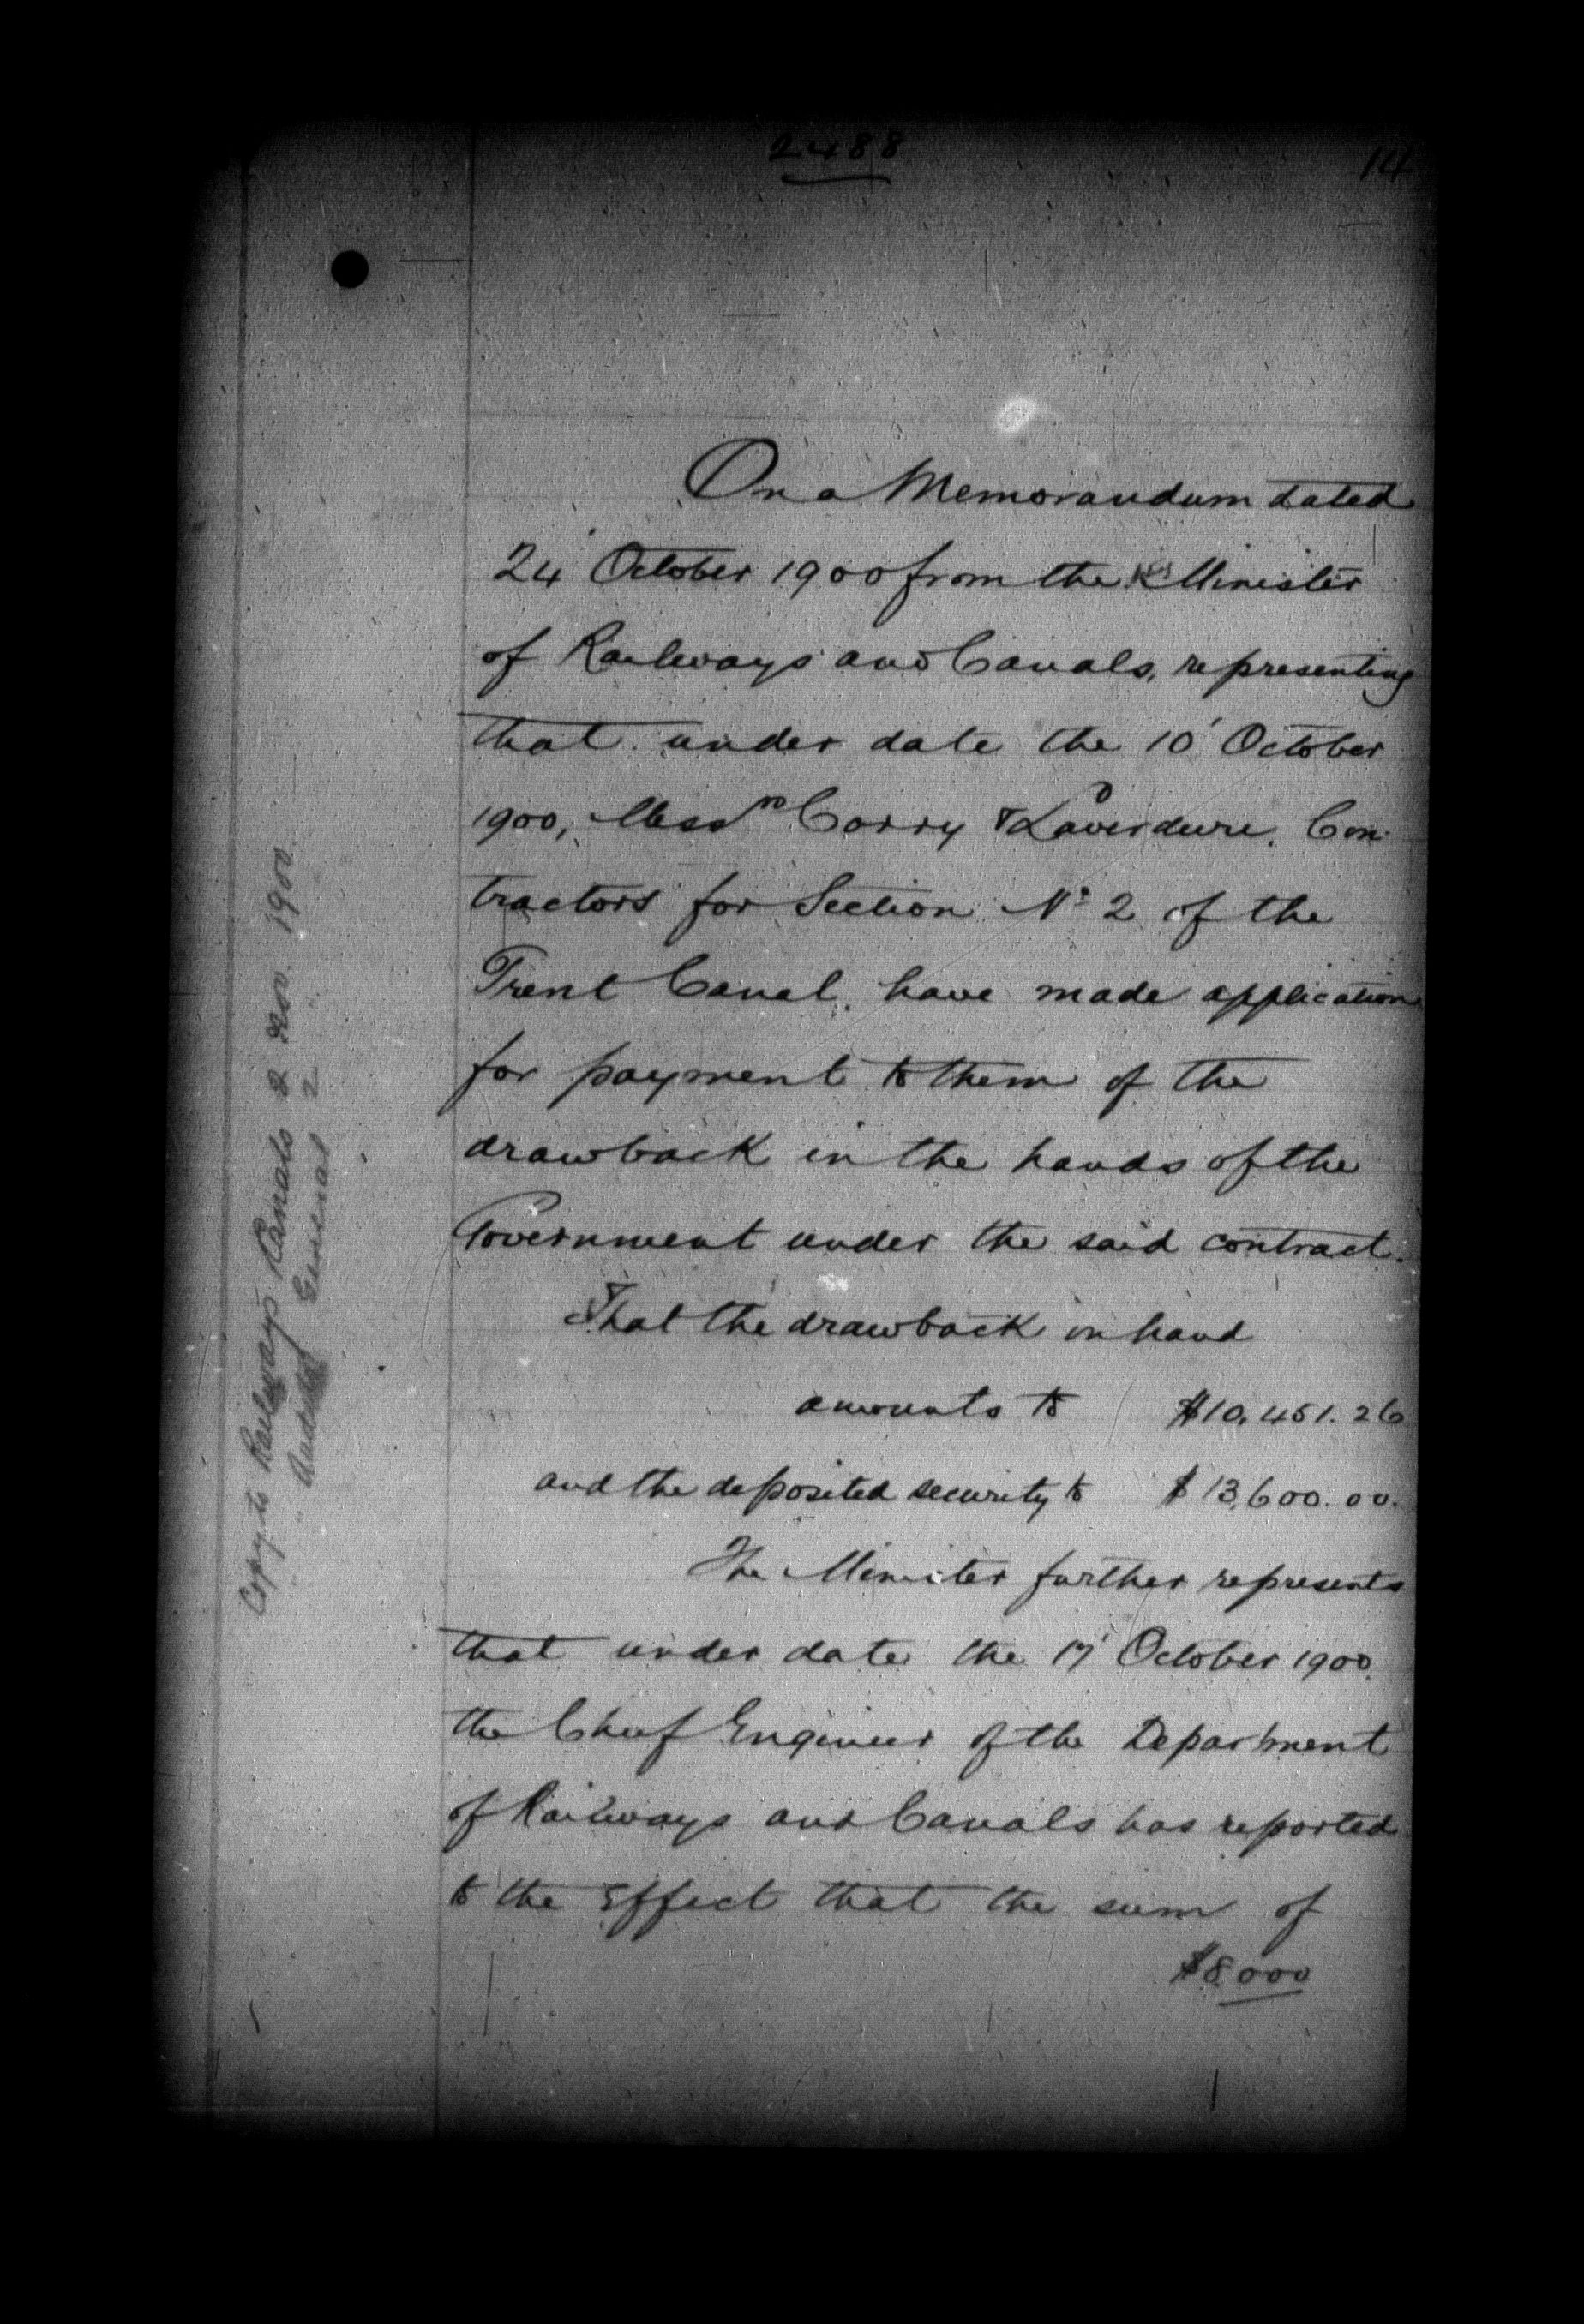 2488
14
On a Memorandum dated
24 October 1900 from the Minister
of Railways and Canals, representing
that under date the 10' October
1900, Messrs Corry & Laverdure, Con-
tractors for Section No 2 of the
Trent Canal, have made application
for payment to them of the
drawback in the hands of the
Government under the said contract.
That the drawback in hand
amounts to $10,451.26
and the deposited security to $13,600.00.
The Minister further represents
that under date the 17' October 1900
the Chief Engineer of the Department
of Railways and Canals has reported
to the Effect that the sum of
$8,000
Copy to Railways Canals 2 Nov 1900.
" Auditor General 2